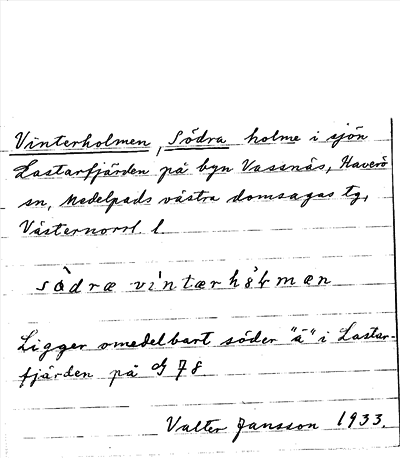 Vinterholmen, Södra holme i sjön
Lastarfjärden på byn Vassnäs, Haverö
sn, Medelpads västra domsagas tg,
Västernorrl. l.
södræ vintærhɷ̂ɽmæn
Ligger omedelbart söder "ä" i Lastar-
fjärden på 78
Valter Jansson 1933.